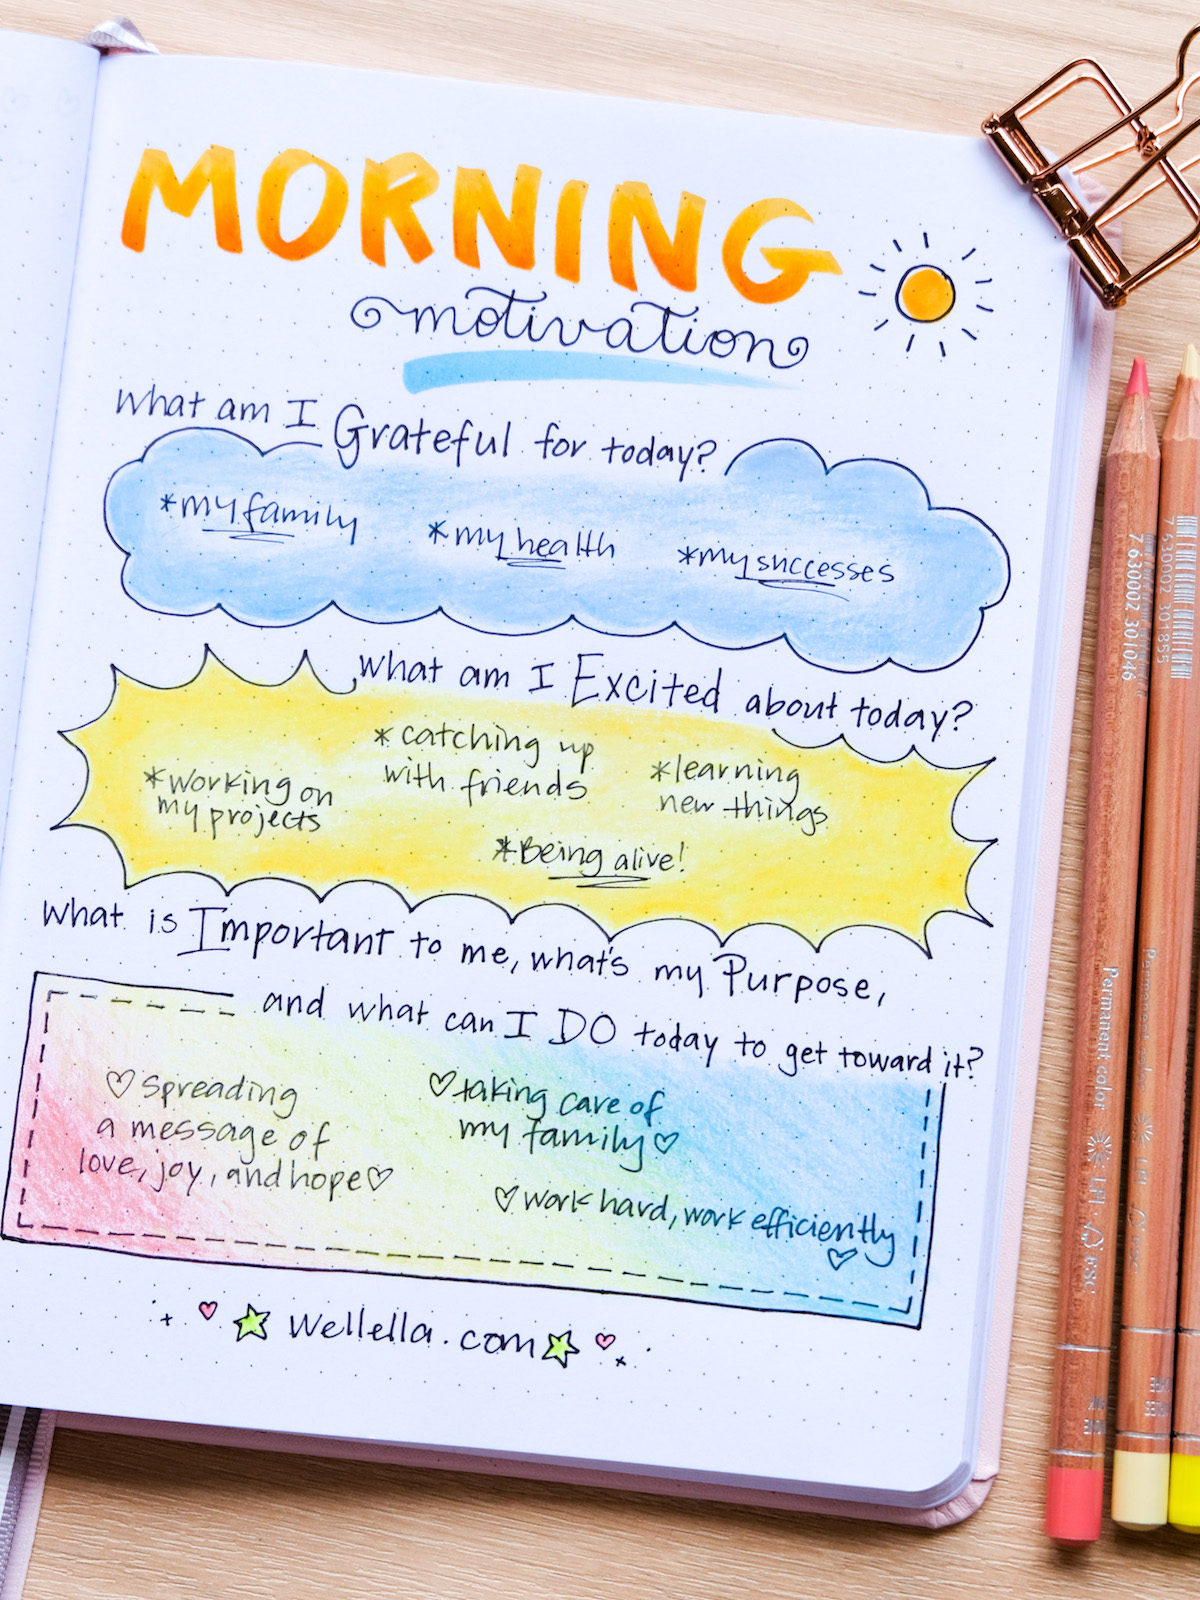 MORNING
motivation
What am I Grateful for today?
*my family
*my health
*my successes
What am I Excited about today?
*catching up
with friends
*working on
my projects
*learning
new things
*Being alive!
What is Important to me, what's my Purpose,
and what can I DO today to get toward it?
♡Spreading
a message of
love, joy, and hope♡
♡taking care of
my family♡
♡work hard, work efficiently
♡
wellella.com
7 630002 301046
7 630002 301855
Permanent color
LFI